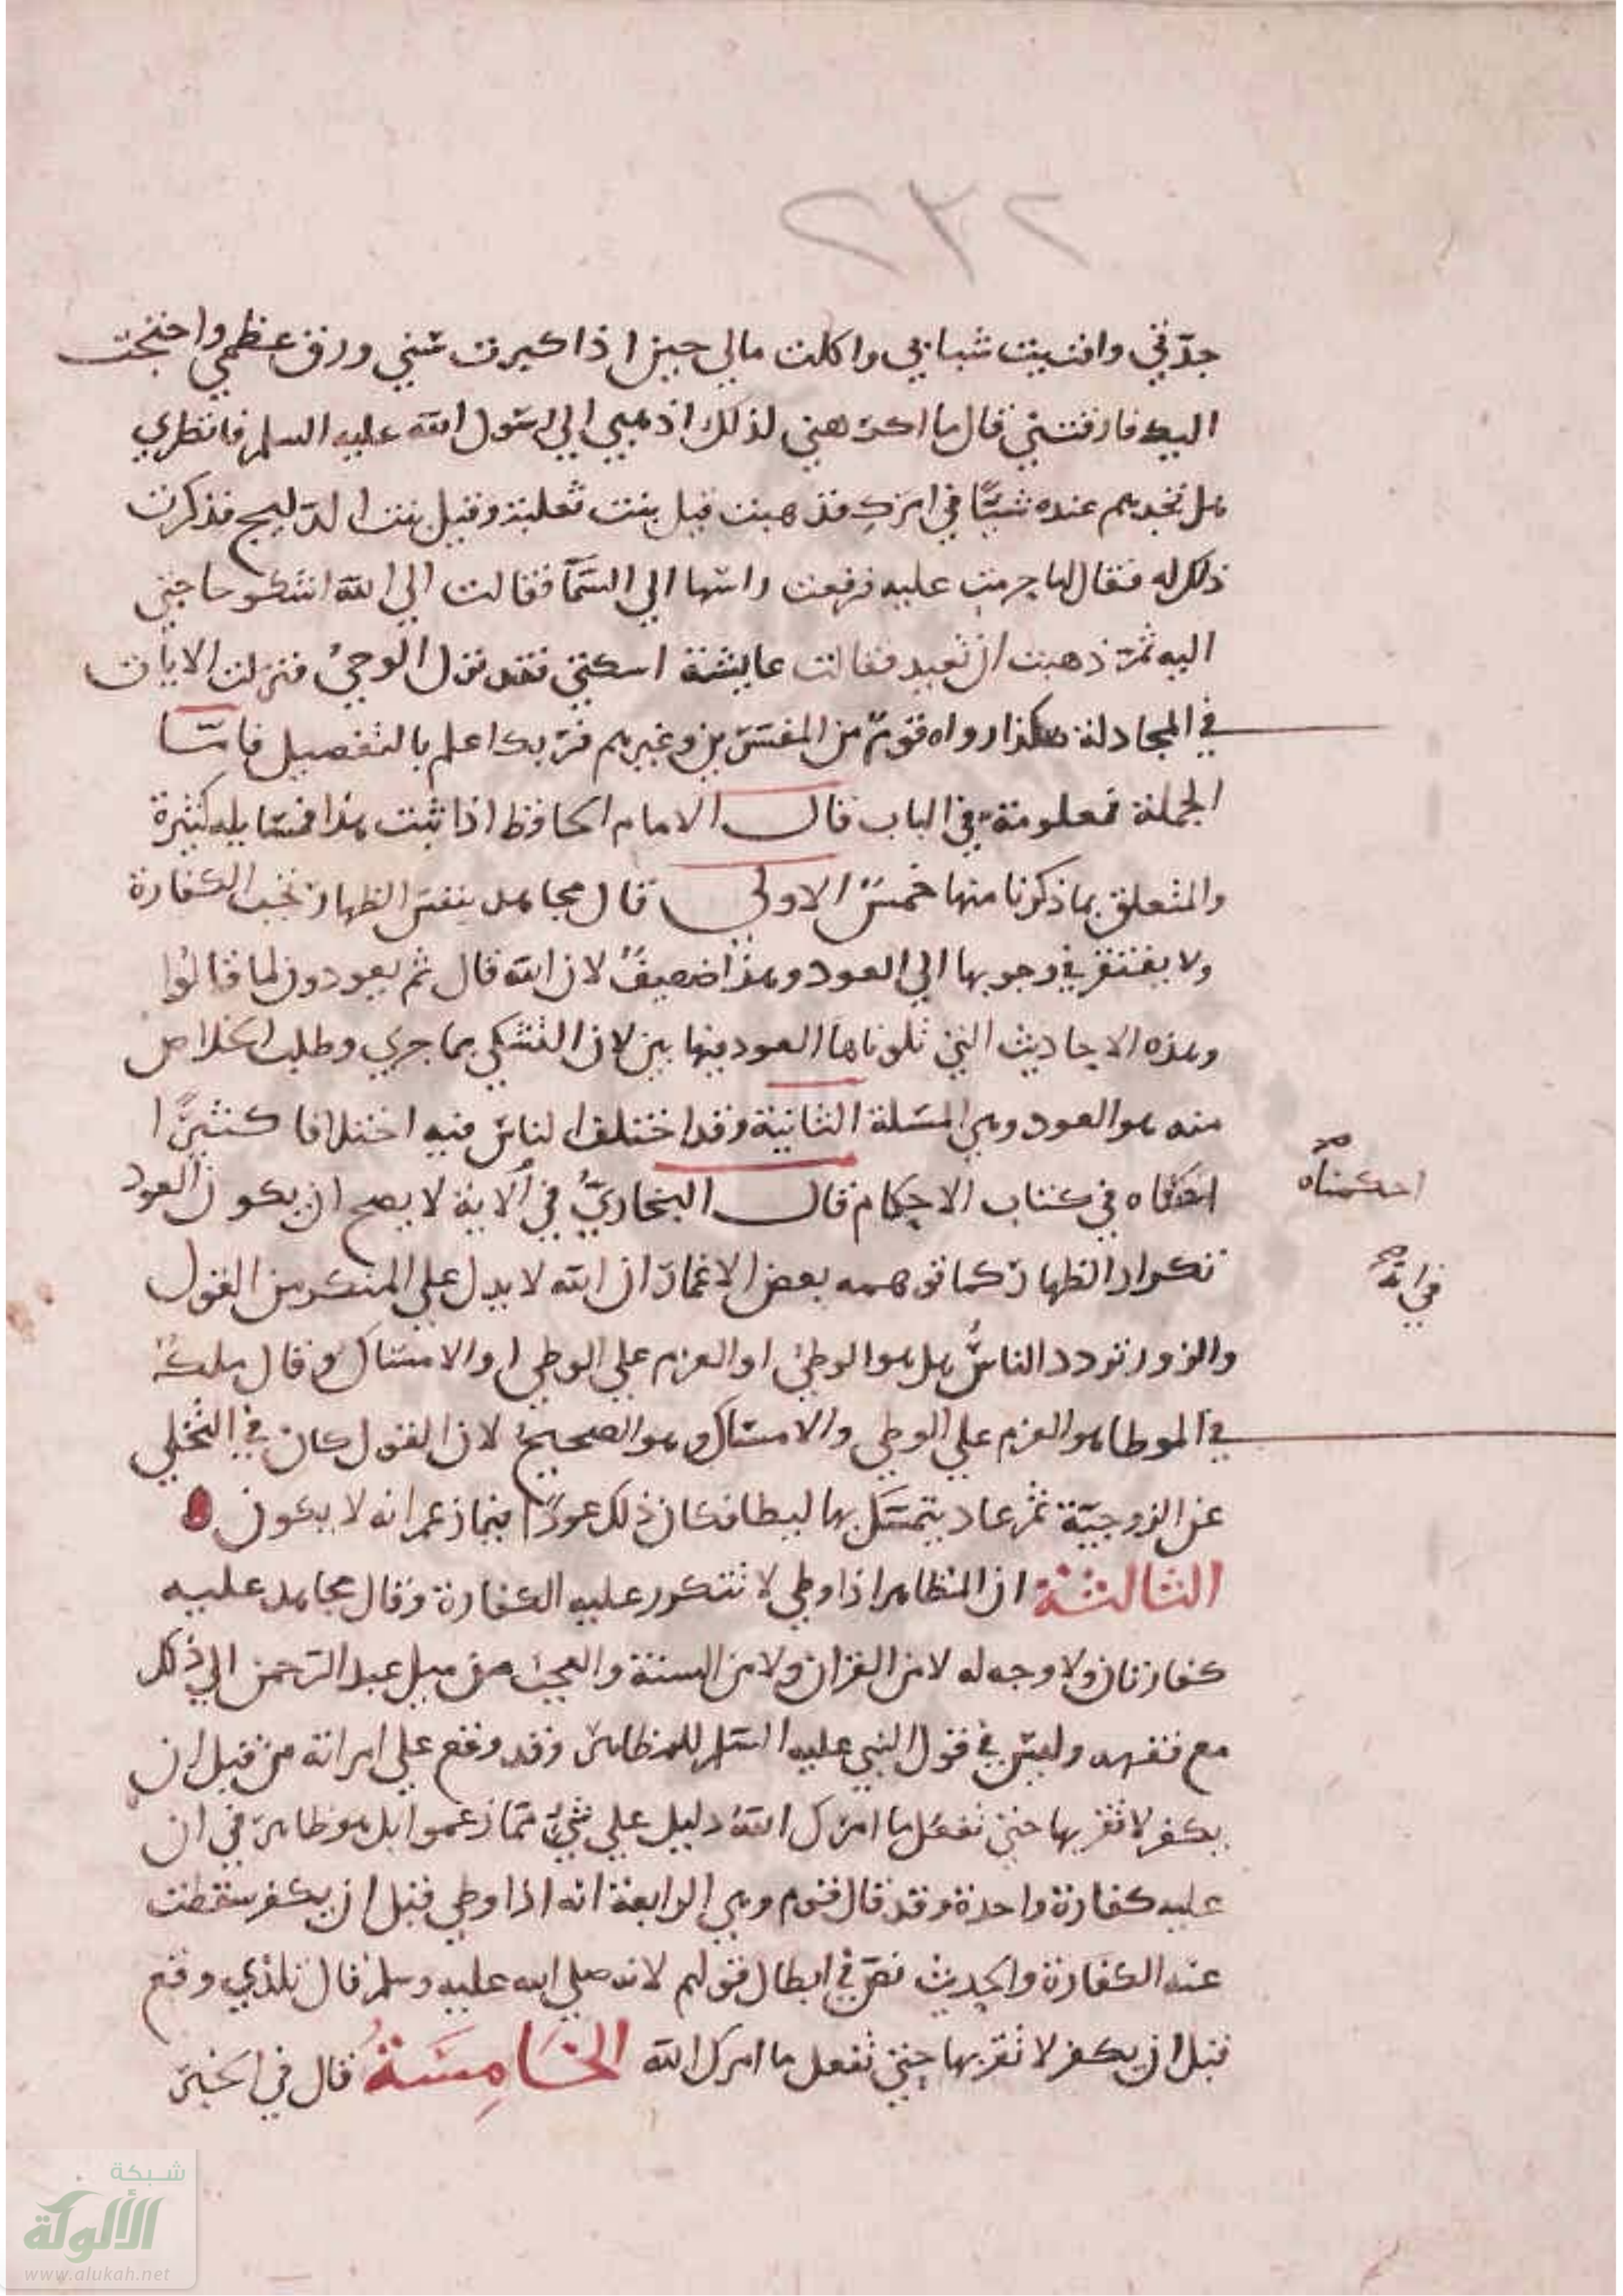 ٢٣٢
جدّتي وافنيت شبابي واكلت مالي حين اذا كبرت سني ورق عظمي واحتجت
اليك فارقتني قال ما اكرهني لذلك اذهبي الي رسول الله عليه السلم فانظري
هل تجديم عنده شيًا في امرك فذهبت قيل بنت ثعلبة وقيل بنت الدليج فذكرت
ذلك له فقال لها حرمت عليه فرفعت راسها الي السّمآ فقالت الي الله اشكو حاجتي
اليه ثمّ ذهبت ان تعيد فقالت عايشة اسكتي فقد نزل الوحي فنزلت الايات
في المجادلة هكذا رواه قوم من المفسّرين وغيرهم فربك اعلم بالتفصيل فامّا
الجملة فمعلومة في الباب قال الامام الحافظ اذا ثبت هذا فمسايله كثيرة
والمتعلق بما ذكرنا منها خمسٌ الاولي قال مجاهد بنفس الظهار تجب الكفارة
ولا يفتقر في وجوبها الي العود وهذا ضعيفٌ لان الله قال ثم يعودون لما قالوا
وهذه الاحاديث التي تلوناها العود فيها بين لان التشكي بما جري وطلب الخلاص
منه هو العود وهي المسلة الثانية وقد اختلف الناس فيه اختلافا كثيرًا
في كتاب الاحكام قال البخاريُّ في الاية لا يصح ان يكون العود
احكمناه
تكرار الظهار كما توهمه بعض الاغمار ان الله لا يدل علي المنكر من القول
في انه
والزور تردد الناس هل هو الوطئ او العزم علي الوطي او الامساك وقال ملك
في الموطا هو العزم علي الوطي والامساك وهو الصحيح لان القول كان في التخلي
عن الزوجيّة ثمّ عاد يتمسّك بها ليطا فكان ذلك عودًا فيما زعم انه لا يكون
الثالثة ان المظاهر اذا وطي لا تتكرر عليه الكفارة وقال مجاهد عليه
كفارتان ولا وجه له لا من القران ولا من السنة والعجب من ميل عبد الرّحمن الي ذلك
مع فقهه وليس في قول النبي عليه السّلم للمظاهر وقد وقع علي امراته من قبل ان
يكفر لا تقربها حتي تفعل ما امرك اللهُ دليل علي شئ ممّا زعموا بل هو ظاهر في ان
عليه كفارة واحدة وقد قال قوم وهي الرابعة انه اذا وطي قبل ان يكفر سقطت
عنه الكفارة والحديث نصّ في ابطال قولهم لانه صلي الله عليه وسلم قال للذي وقع
قبل ان يكفر لا تقربها حتي تفعل ما امرك الله الخَامِسَةُ قال في الخبر
شبكة
الألوكة
www.alukah.net